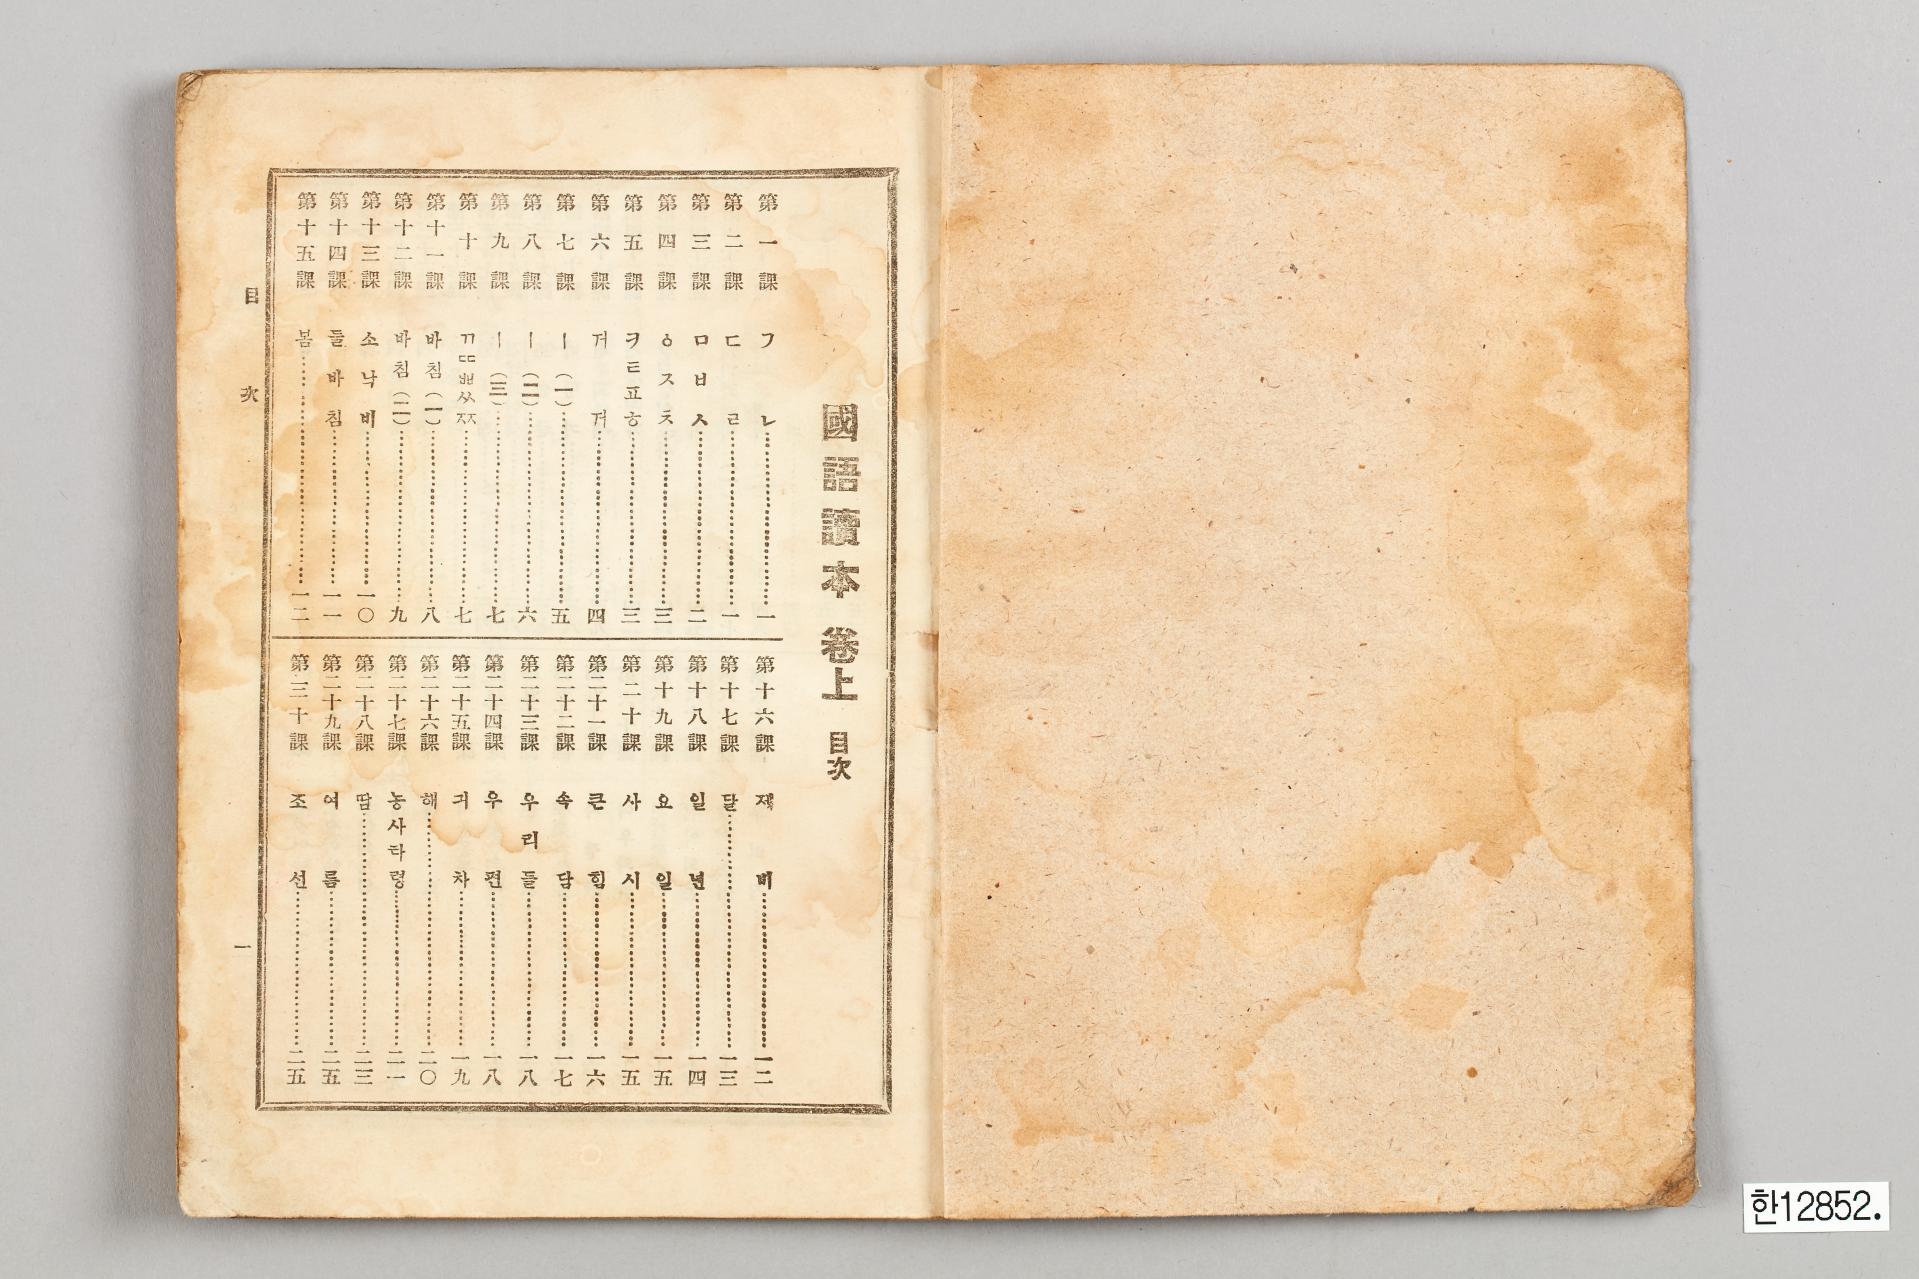 國語讀本 卷上 目次
第一課 ㄱ ㄴ 一
第二課 ㄷ ㄹ 一
第三課 ㅁ ㅂ ㅅ 二
第四課 ㅇ ㅈ ㅊ 三
第五課 ㅋ ㅌ ㅍ ㅎ 三
第六課 겨 져 四
第七課 ㅣ (一) 五
第八課 ㅣ (二) 六
第九課 ㅣ (三) 七
第十課 ㄲ ㄸ ㅃ ㅆ ㅉ 七
第十一課 바침 (一) 八
第十二課 바침 (二) 九
第十三課 소낙비 一〇
第十四課 둘바침 一一
第十五課 봄 一二
第十六課 제비 一二
第十七課 달 一三
第十八課 일년 一四
第十九課 요일 一五
第二十課 사시 一五
第二十一課 큰힘 一六
第二十二課 속담 一七
第二十三課 우리들 一八
第二十四課 우편 一八
第二十五課 긔차 一九
第二十六課 해 二〇
第二十七課 농사타령 二一
第二十八課 땀 二三
第二十九課 여름 二五
第三十課 조선 二五
目次 一
한12852.